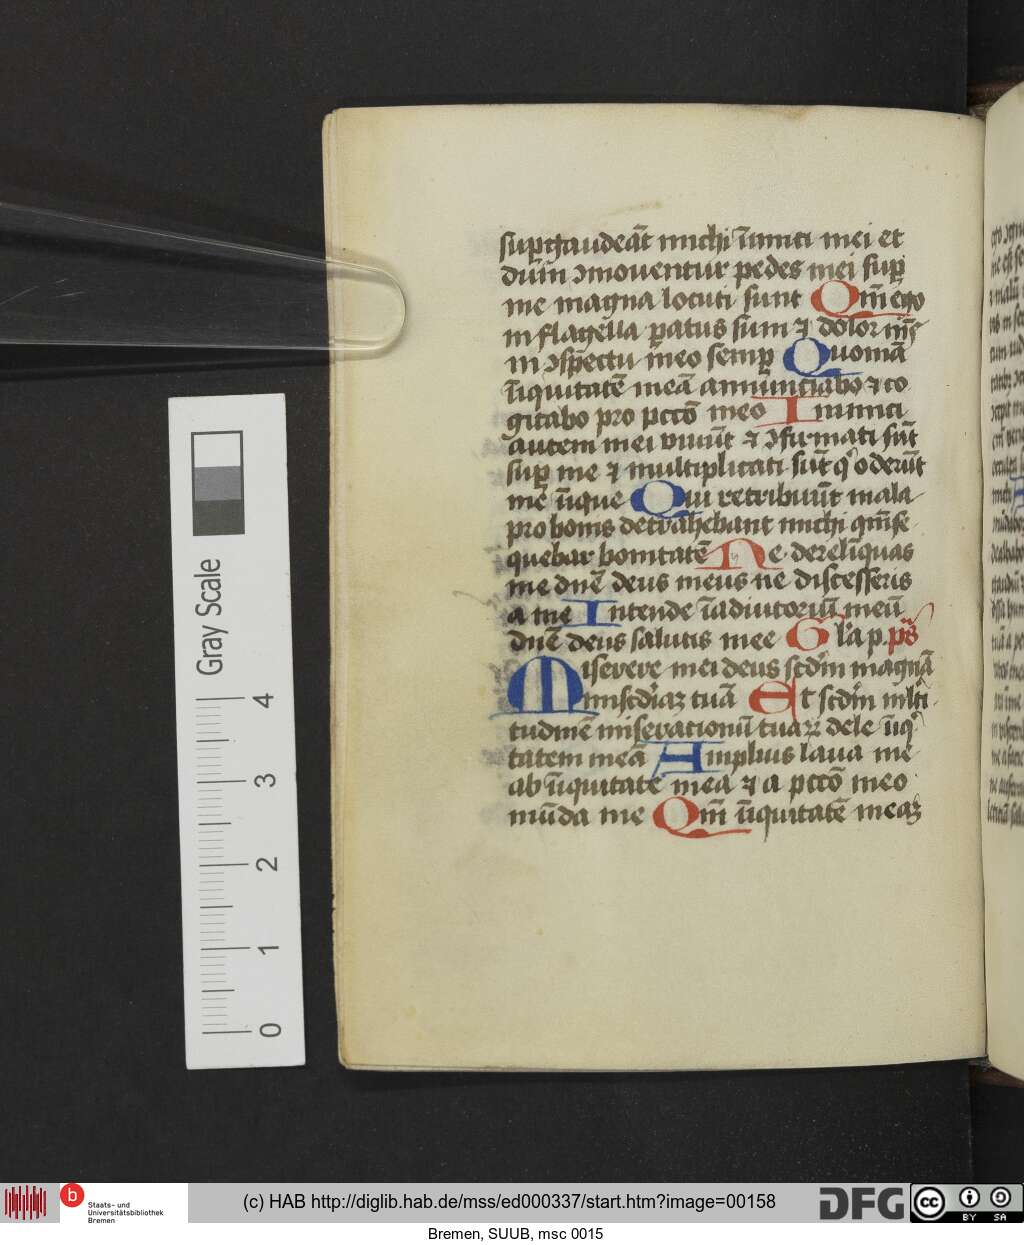 sup̱gaudeāt michi īimici mei et
dum ꝯmouentur pedes mei sup̱
me magna locuti sunt Qm̄ ego
in flagella ꝑatus sum ⁊ dolor mẽ
in ꝯspectu meo semp̱ Quoniā
īiquitatē meā annunciabo ⁊ co
gitabo pro pctō meo Inimici
autem mei viuūt ⁊ ꝯfirmati sūt
sup̱ me ⁊ multiplicati sūt qͥ oderūt
me īique Qui retribuūt mala
pro bonis detrahebant michi qm̄ se
quebar bonitatē Ne derelīquas
me dnē deus meus ne discesseris
a me Intende īadiutoriū meū
dnē deus salutis mee Gl'a p. ps
Miserere mei deus scdm̄ magnā
miscd̄iaꝫ tuā Et scdm̄ mlti
tudinē miserationū tuaꝝ dele īiqͥ
tatem meā Amplius laua me
ab īiquitate mea ⁊ a pctō meo
mūda me Qm̄ īiquitatē meaꝫ
Gray Scale
4
3
2
1
0
b Staats- und
Universitätsbibliothek
Bremen
(c) HAB http://diglib.hab.de/mss/ed000337/start.htm?image=00158
DFG
cc BY SA
Bremen, SUUB, msc 0015